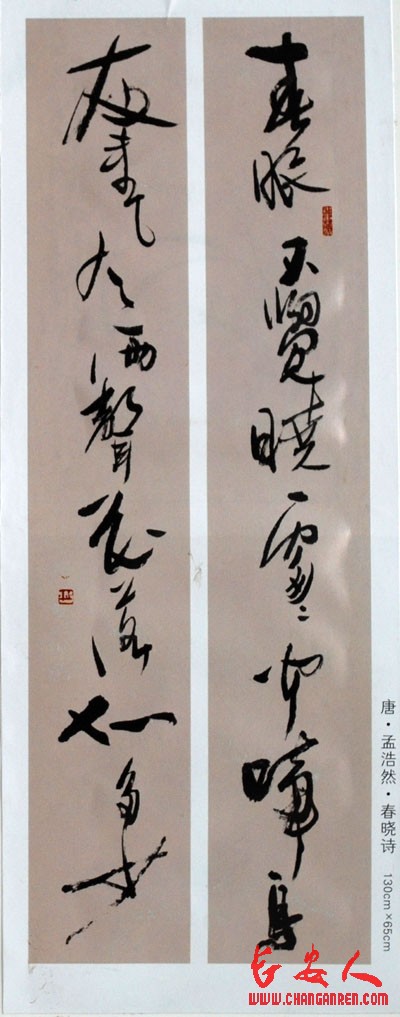 春眠不覺曉處〻聞啼鳥
夜来風雨聲花落知多少
唐·孟浩然·春晓诗 130cm×65cm
长安人
WWW.CHANGANREN.COM